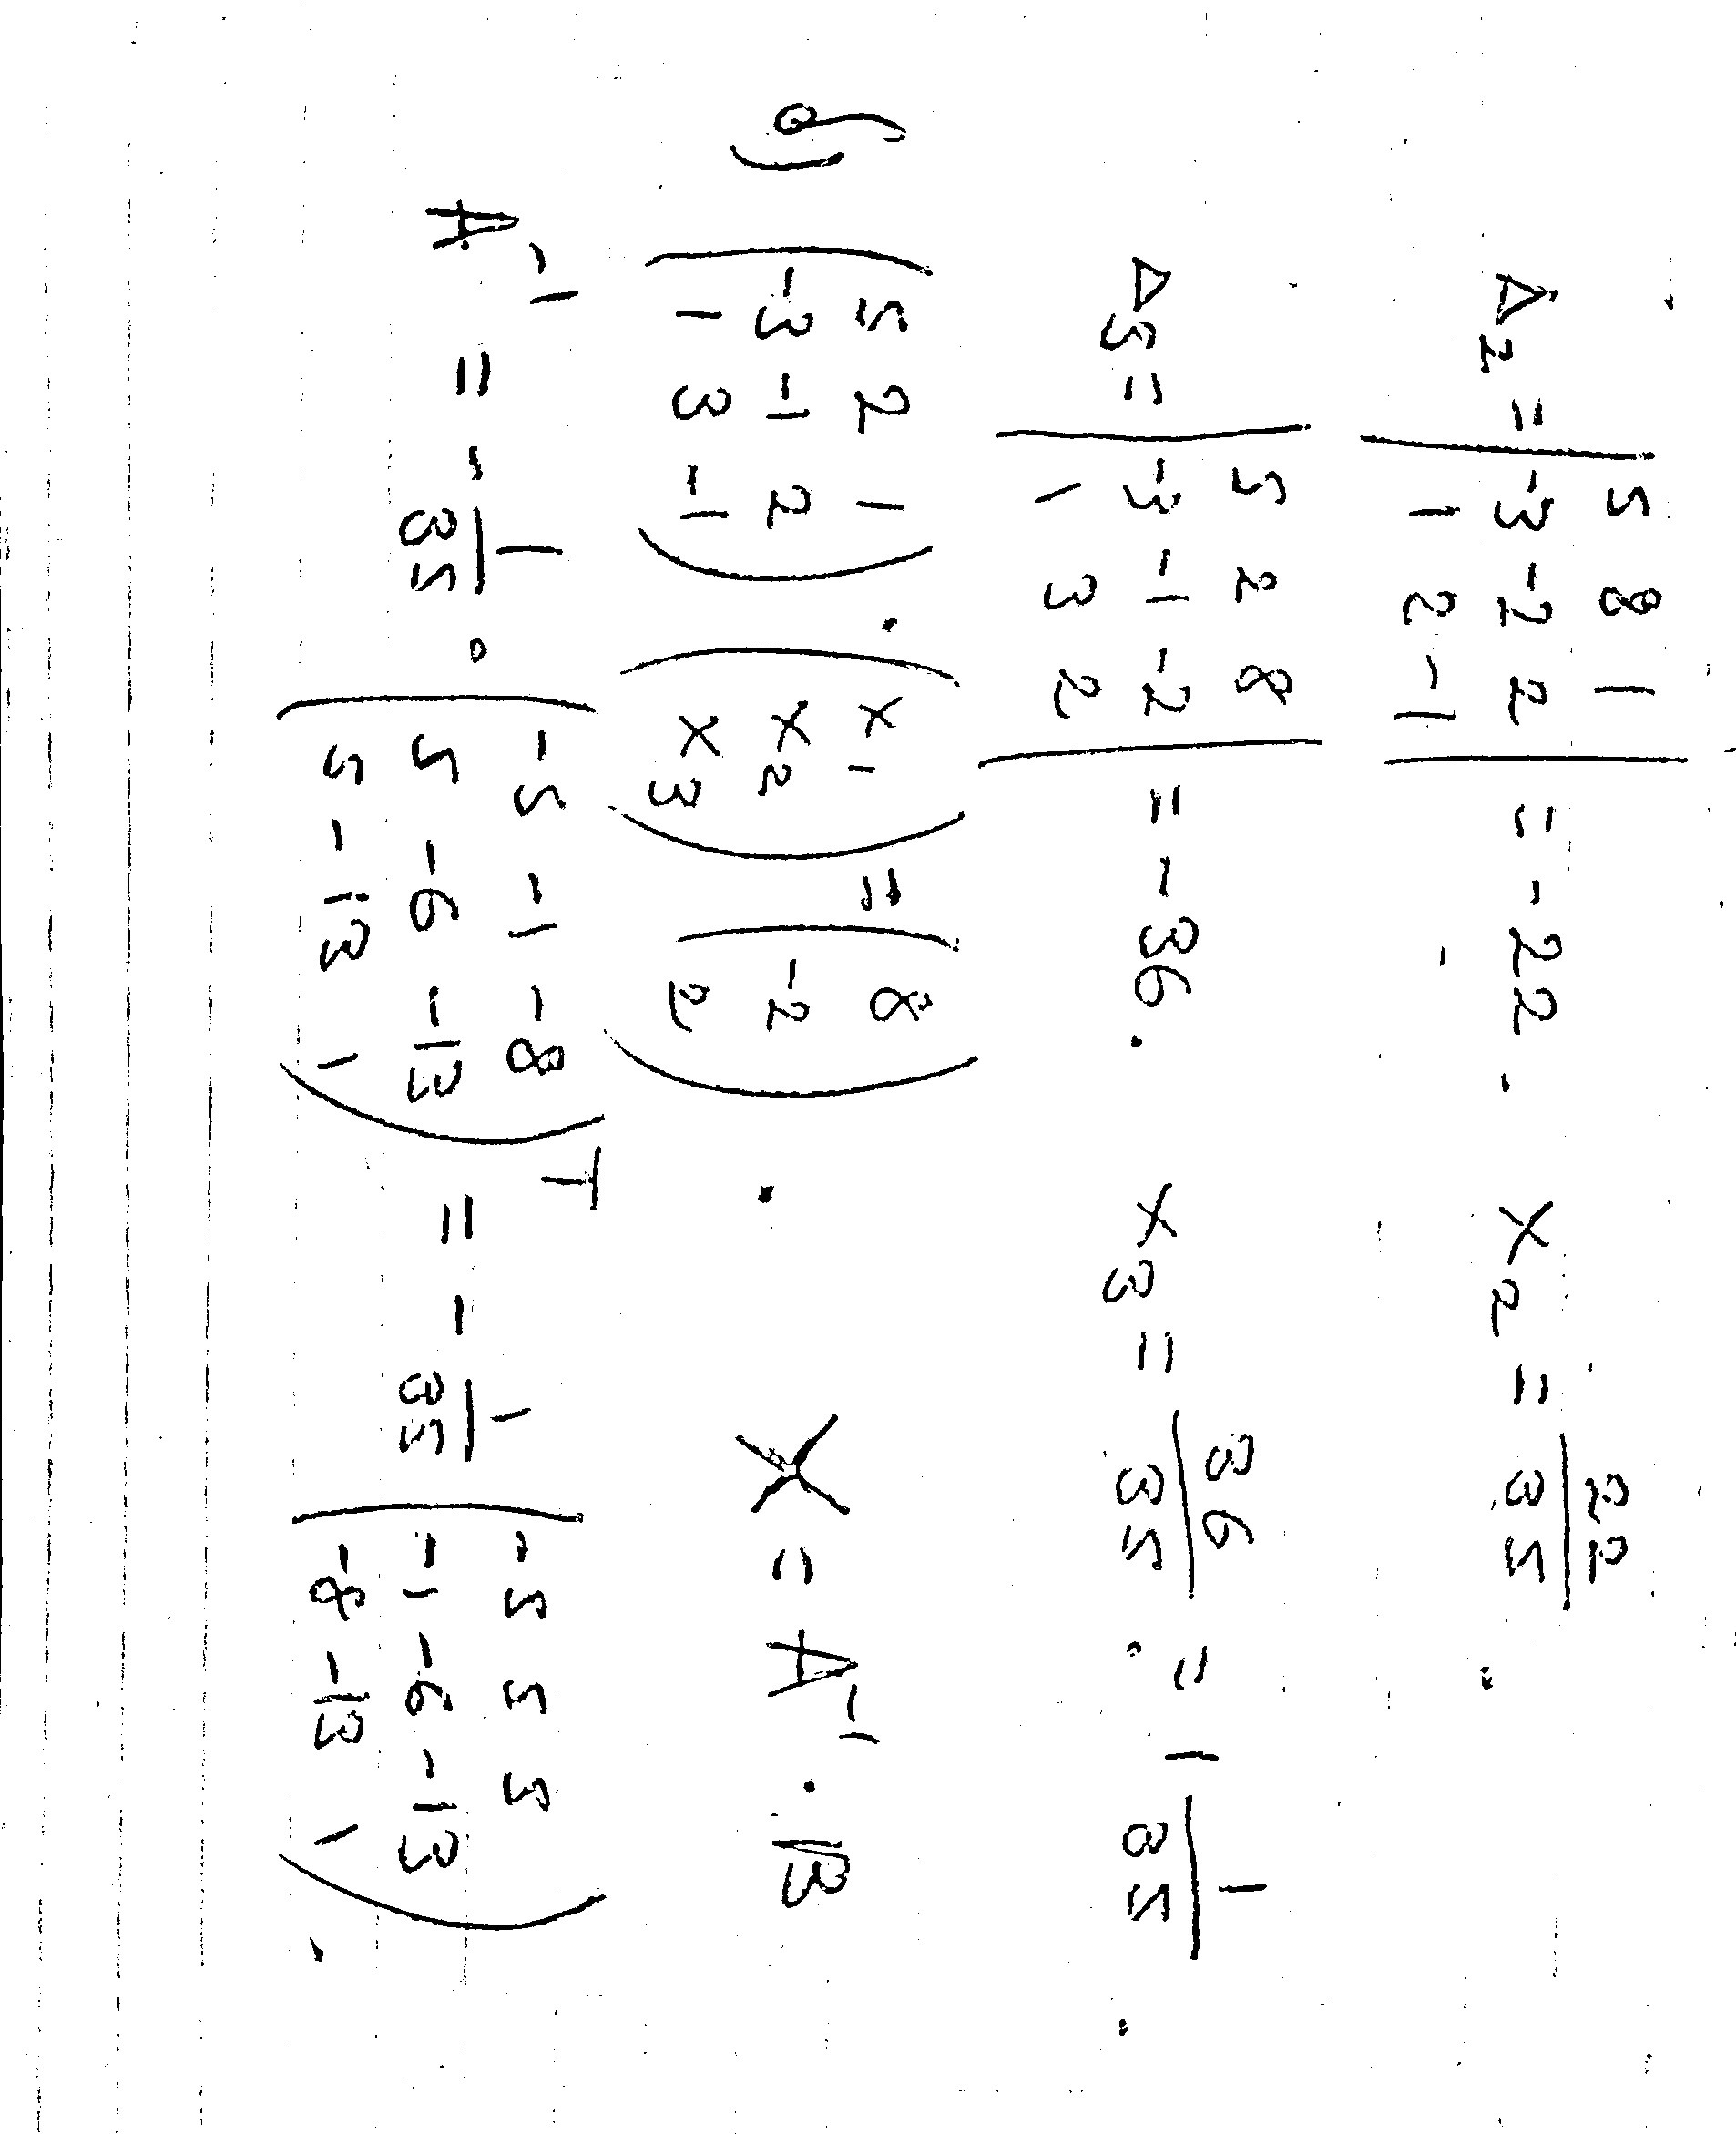 Δ₂ = | 5 8 1 ; -3 -2 2 ; 1 2 -1 | = -22. x₂ = 22/35.
Δ₃ = | 5 2 8 ; -3 -1 -2 ; 1 3 2 | = -36. x₃ = 36/35. = 1 1/35.
б) ( 5 2 1 ; -3 -1 2 ; 1 3 -1 ) · ( x₁ ; x₂ ; x₃ ) = ( 8 ; -2 ; 2 ). X = A⁻¹ · B
A⁻¹ = - 1/35 · ( -5 -1 -8 ; 5 -6 -13 ; 5 -13 1 )ᵀ = - 1/35 ( -5 5 5 ; -1 -6 -13 ; -8 -13 1 ).